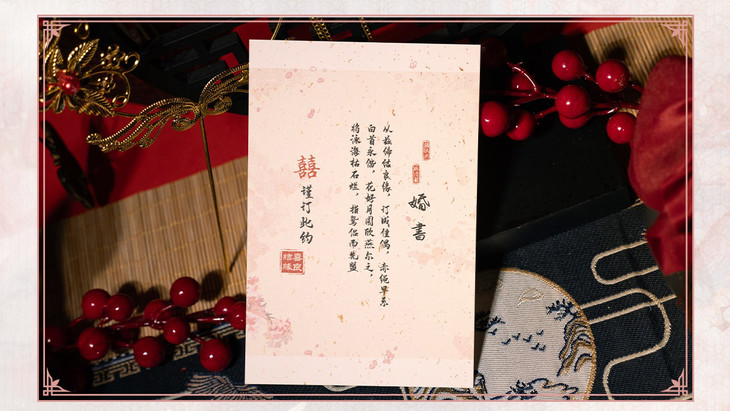 婚書
从兹缔结良缘，订成佳偶，赤绳早系
白首永偕，花好月圆欣燕尔之，
将泳海枯石烂，指鸳侣而先盟
囍
谨订此约
喜结良缘